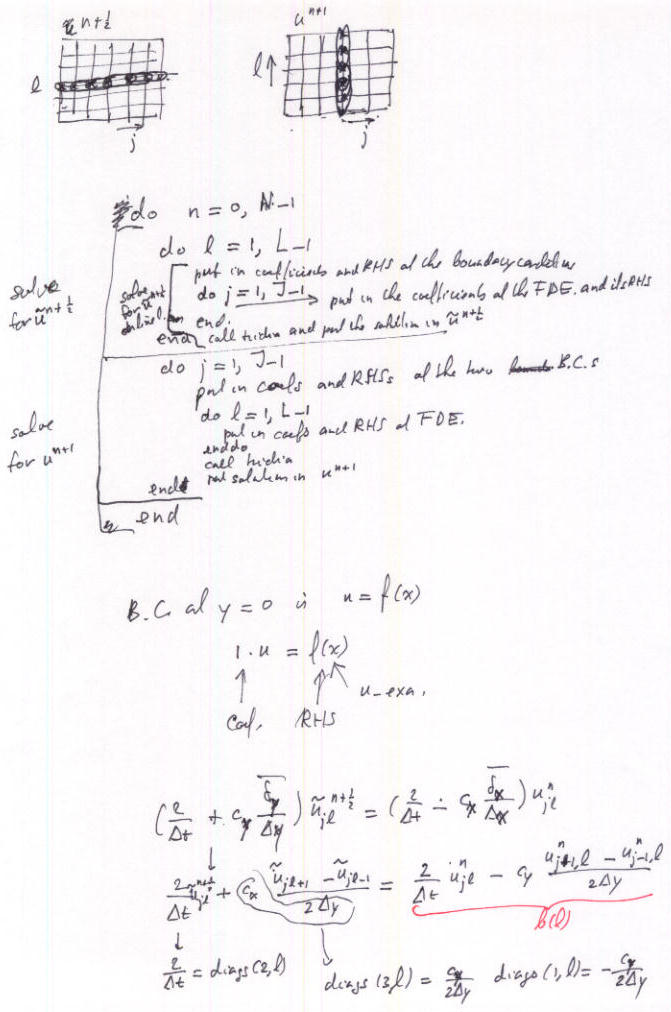 u^{n+½}
l
j
u^{n+1}
l ↑
j
do n = 0, N-1
do l = 1, L-1
put in coefficients and RHS at the boundary conditions
do j = 1, J-1 → put in the coefficients at the FDE. and its RHS
end.
end call tridia and put the solution in ũ^{n+½}
solve for ũ^{n+½}
solve for ũ^{n+½} on line l.
do j = 1, J-1
put in coefs and RHSs at the two B.C.s
do l = 1, L-1
put in coefs and RHS at FDE.
enddo
call tridia
put solution in u^{n+1}
end
end
solve
for u^{n+1}
B.C. at y = 0 is u = f(x)
1 · u = f(x)
Coef. RHS u-exa.
(2/Δt + c δ̄/Δ) ũ_{jl}^{n+½} = (2/Δt - c δ̄_x/Δx) u_{jl}^n
2/Δt ũ_{jl}^{n+½} + c_x (ũ_{jl+1} - ũ_{jl-1})/2Δy = 2/Δt u_{jl}^n - c_y (u_{j+1,l}^n - u_{j-1,l}^n)/2Δy
b(l)
2/Δt = diags(2,l) diags(3,l) = c/2Δy diags(1,l) = -c/2Δy